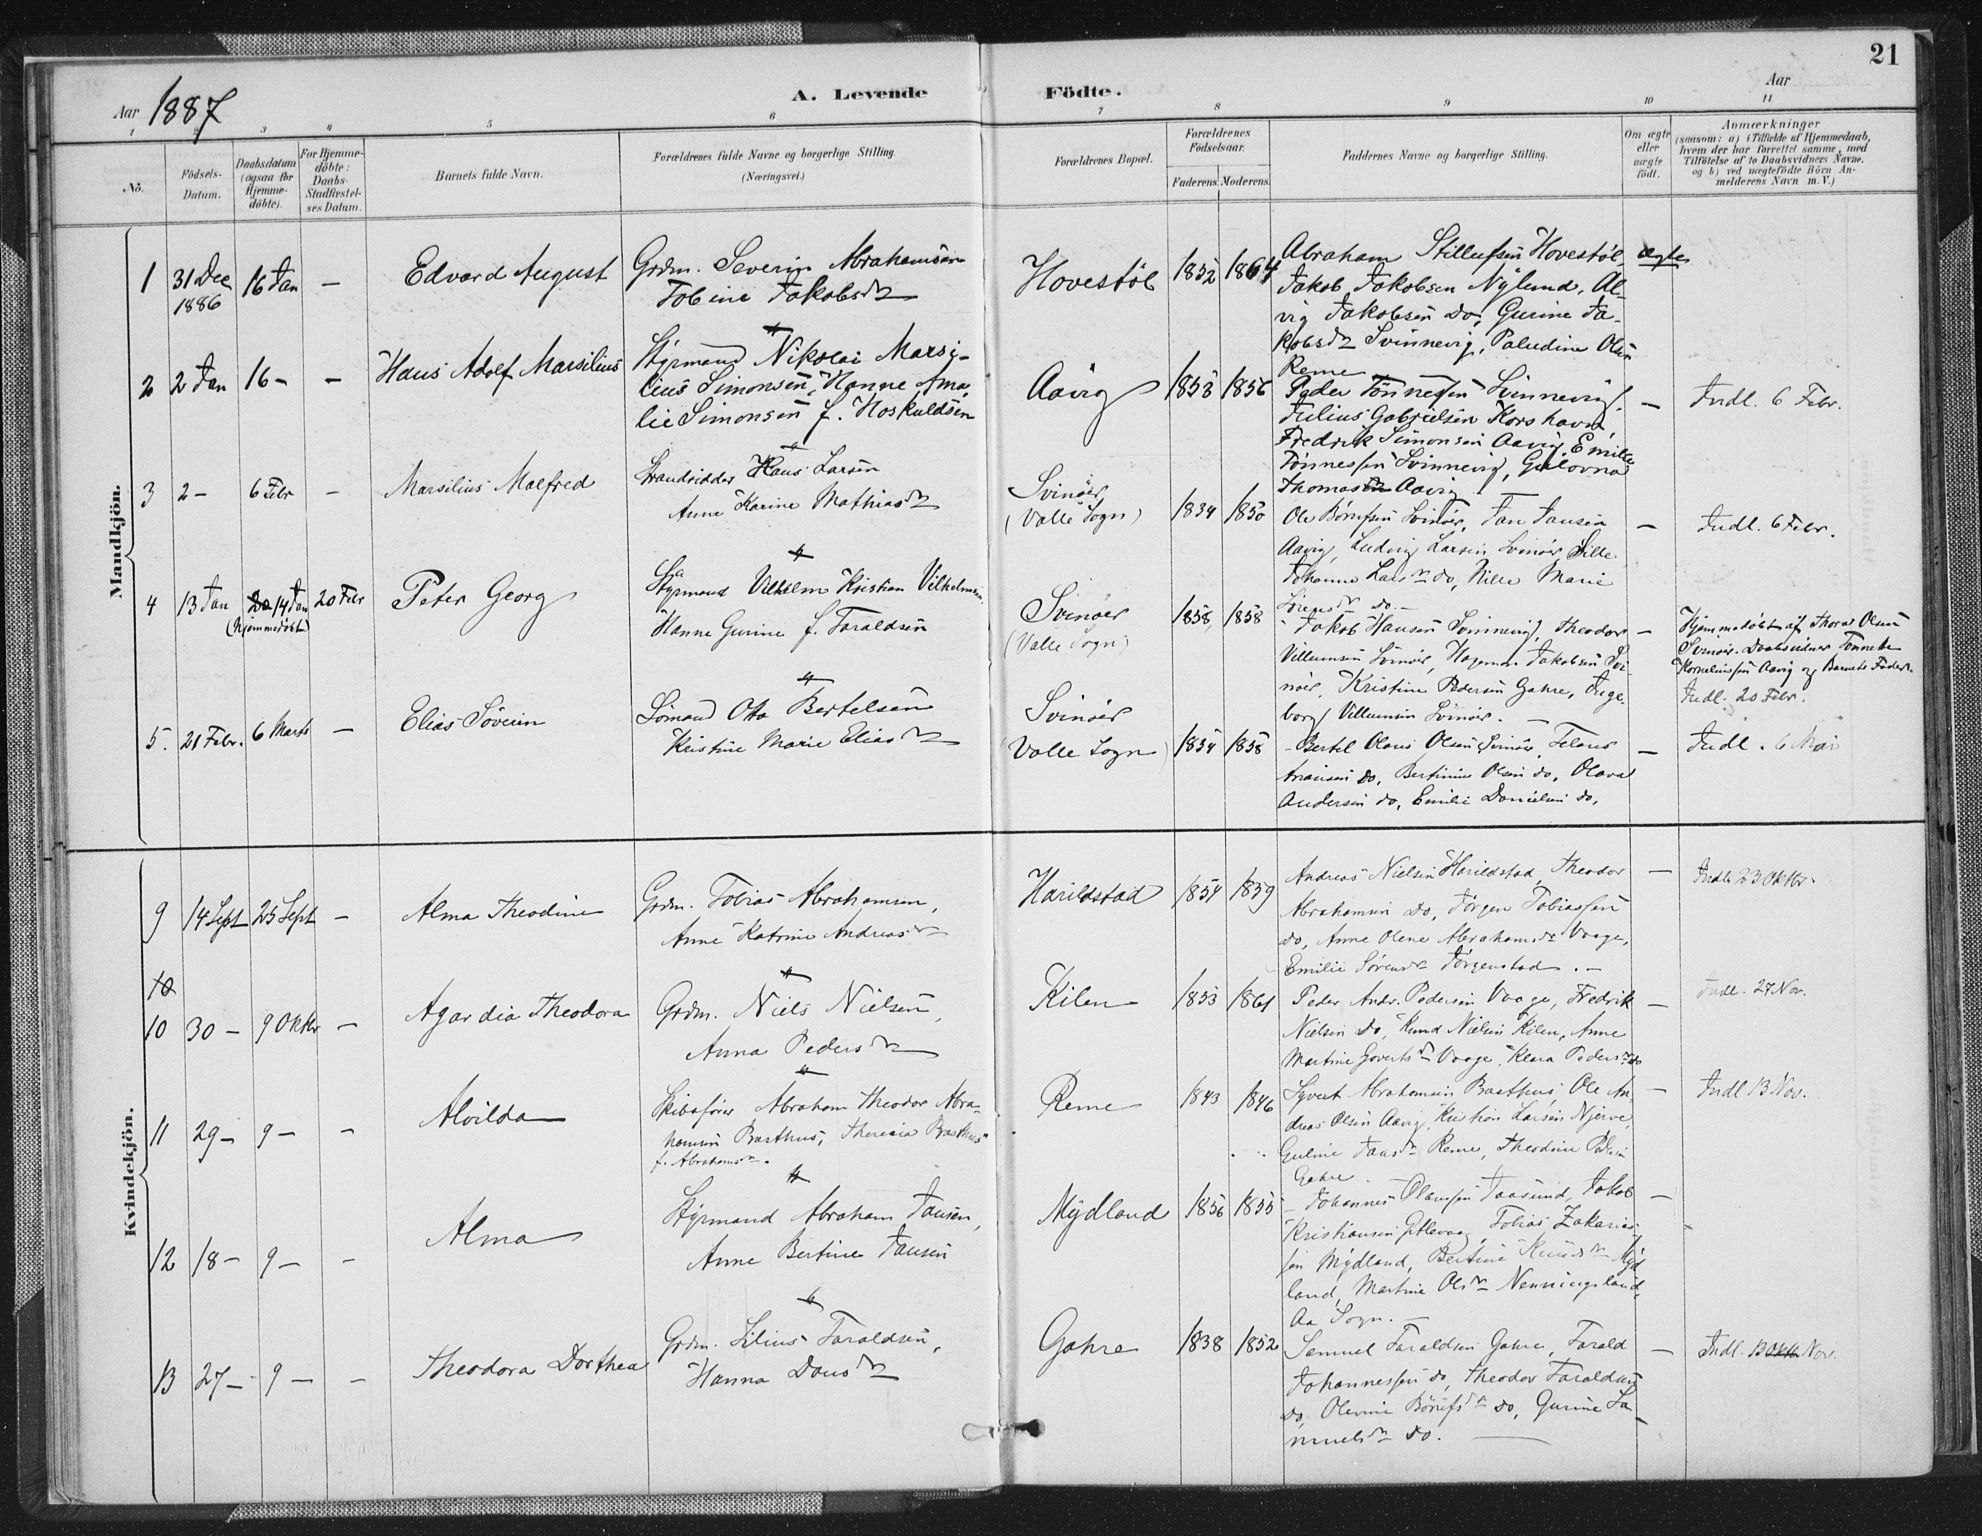 21
Aar 1887
A. Levende Födte.
Aar
1 2 3 4 5 6 7 8 9 10 11
No.
Födsels-Datum.
Daabsdatum (ogsaa for Hjemme-döbte).
For Hjemme-döbte: Daabs-Stadfæstel-ses Datum.
Barnets fulde Navn.
Forældrenes fulde Navne og borgerlige Stilling.
(Næringsvei.)
Forældrenes Bopæl.
Forældrenes Födselsaar.
Faderens. Moderens.
Faddernes Navne og borgerlige Stilling.
Om ægte eller uægte födt.
Anmærkninger
(saasom: a) i Tilfælde af Hjemmedaab,
hvem der har forrettet samme, med
Tilföielse af to Daabsvidners Navne,
og b) ved uægtefödte Börn An-
melderens Navn m. V.)
Mandkjön.
1 31 Dec 1886 16 Jan — Edvard August
Grdm. Severin Abrahamsen
Tobine Jakobsdr
Hovestöl 1852 1864
Abraham Stillufsen Hovestöl ægte
Jakob Jakobsen Nylund, Al-
vig Jakobsen do, Gurine Ja-
kobsdr Svinnevig, Paludine Olsen
Reme
2 2 Jan 16 — — Hans Adolf Marsilius
Styrmand Nikolai Marsi-
lius Simonsen, Hanne Ama
lie Simonsen f. Hoskuldsen
Aavig 1853 1856
Peder Tönnessen Svinnevig,
Julius Gabrielsen Korshavn,
Fredrik Simonsen Aavig, Emilie
Tönnessen Svinnevig, Gulovna
Thomasdr Aavig
— Indl. 6 Febr.
3 2 — 6 Febr — Marsilius Malfred
Strandsidder Hans Larsen
Anne Karine Mathiasdr
Svinöer
(Valle Sogn) 1834 1850
Ole Börufsen Svinöer, Jan Jansen
Aavig, Ludvig Larsen Svinöer, Sille
Johanne Larsdr do, Nille Marie
Sörensdr do. —
— Indl. 6 Febr.
4 13 Jan 14 Jan (hjemmedöbt) 20 Febr Peter Georg
Styrmand Vilhelm Kristian Vilhelmsen,
Hanne Gurine f. Taraldsen
Svinöer
(Valle Sogn) 1858 1858
Jakob Hansen Svinnevig, Theodor —
Villumsen Svinöer, Hageman Jakobsen Svi-
nöer, Kristine Pedersen Gahre, Inge-
borg Villumsen Svinöer. —
Hjemmedöbt af Thora Olsen
Svinöer. Daabsvidner Tönnette
Korneliussen Aavig og Barnets Fader.
Indl. 20 Febr.
5. 21 Febr. 6 Marts — Elias Söverin
Sömand Otto Bertelsen
Kristine Marie Eliasdr
Svinöer
(Valle Sogn) 1854 1858
Bertel Olaus Olsen Svinöer,
do, Bertinius Olsen do, Olava
Andersen do, Emilie Danielsen do.
— Indl. 6 Mai
Kvindekjön.
9 14 Sept 25 Sept — Alma Theodine
Grdm. Tobias Abrahamsen,
Anne Katrine Andreasdr
Harildstad 1854 1859
Andreas Nielsen Harildstad, Theodor —
Abrahamsen do, Jörgen Tobiassen
do, Anne Olene Abrahamsdr Vaage,
Emilie Sörensdr Jörgenstad. —
Indl. 23 Oktbr.
10
10 30 — 9 Oktbr — Agardia Theodora
Grdm. Niels Nielsen,
Anna Pedersdr
Kilen 1853 1861
Peder Andr. Pedersen Vaage, Fredrik —
Nielsen do, Knud Nielsen Kilen, Anne
Martine Govertsdr Vaage, Klara Pedersdr do
Indl. 27 Nov.
11 29 — 9 — — Alvilda
Skibsförer Abraham Theodor Abra-
hamsen Barthus, Theresia Barthus
f. Abrahamsdr.
Reme 1843 1846
Syvert Abrahamsen Barthus, Ole An- —
dreas Olsen Aavig, Kristian Larsen Njerve,
Guline Jaasdr Reme, Theodine
Gahre.
Indl 13 Nov.
12 18 — 9 — — Alma
Styrmand Abraham Jansen,
Anne Bertine Jansen
Mydland 1856 1855
Johannes Olaussen Jaasund, Jakob —
Kristiansen, Tobias Zakarias-
sen Mydland, Bertine Knudsdr Myd
land, Martine Olsdr Nenningsland,
Aa Sogn. —
13 27 — 9 — — Theodora Dorthea
Grdm. Silius Taraldsen,
Hanna Dousdr
Gahre 1838 1852
Samuel Taraldsen Gahre, Tarald —
Johannessen do, Theodor Taraldsen
do, Olevine Börufsdr do, Gurine Sa-
muelsdr do.
Indl. 13 Nov.